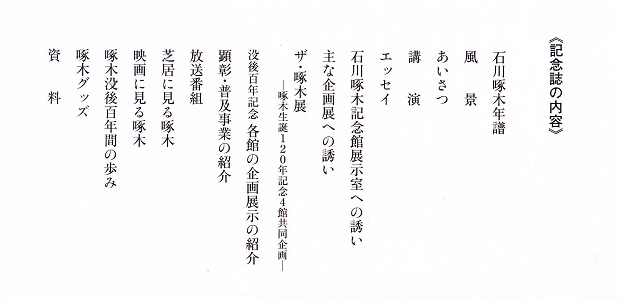 《記念誌の内容》
石川啄木年譜
風　景
あいさつ
講　演
エッセイ
石川啄木記念館展示室への誘い
主な企画展への誘い
ザ・啄木展
―啄木生誕120年記念4館共同企画―
没後百年記念 各館の企画展示の紹介
顕彰・普及事業の紹介
放送番組
芝居に見る啄木
映画に見る啄木
啄木没後百年間の歩み
啄木グッズ
資　料